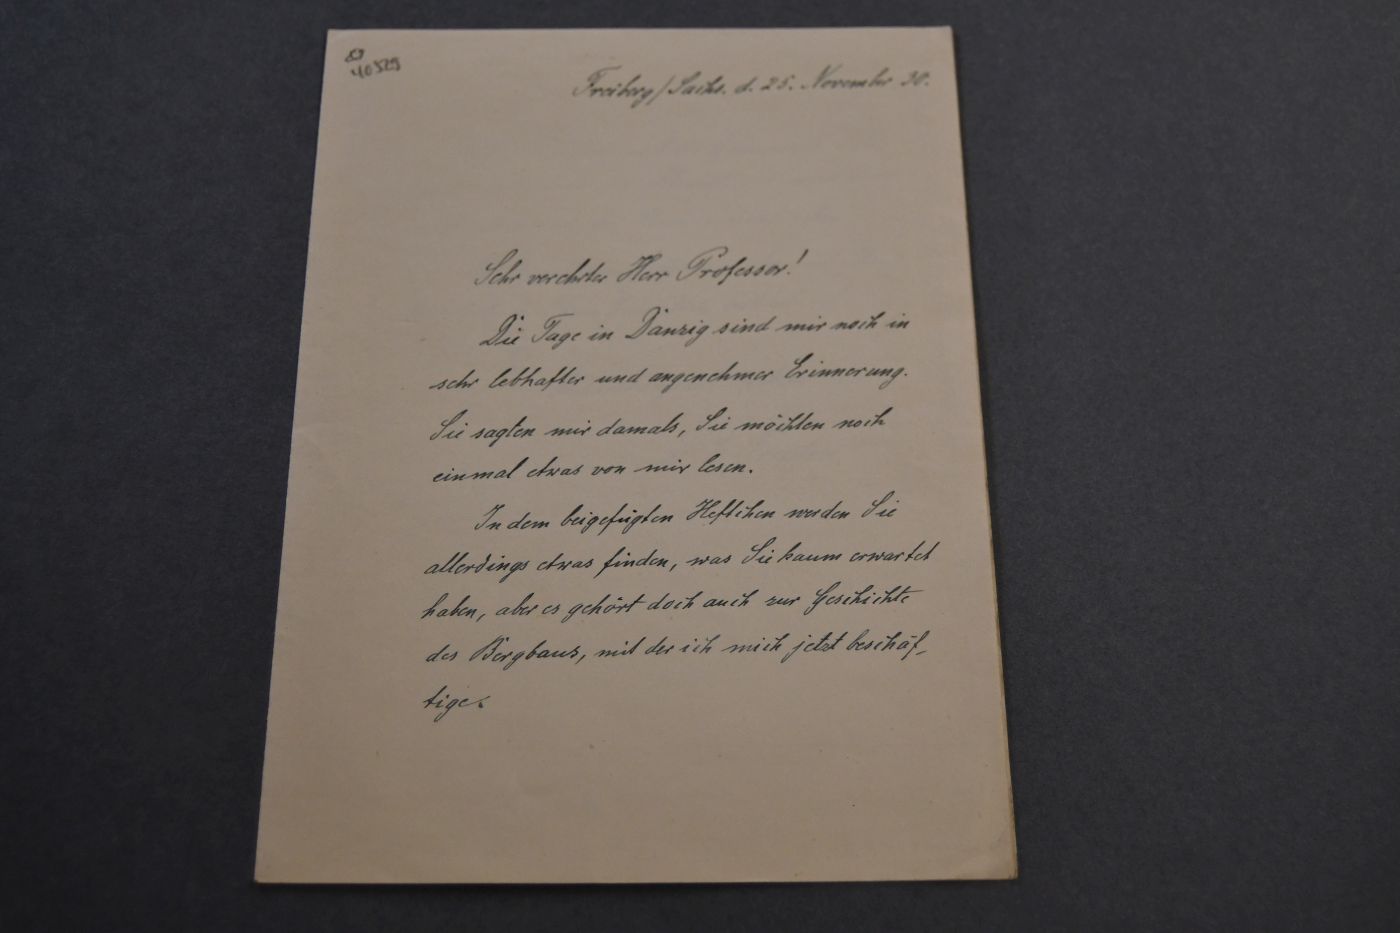 40529
Freiberg/Sachs. d. 25. November 30.
Sehr verehrter Herr Professor!
Die Tage in Danzig sind mir noch in
sehr lebhafter und angenehmer Erinnerung.
Sie sagten mir damals, Sie möchten noch
einmal etwas von mir lesen.
In dem beigefügten Heftchen werden Sie
allerdings etwas finden, was Sie kaum erwartet
haben, aber es gehört doch auch zur Geschichte
des Bergbaus, mit der ich mich jetzt beschäf-
tige.